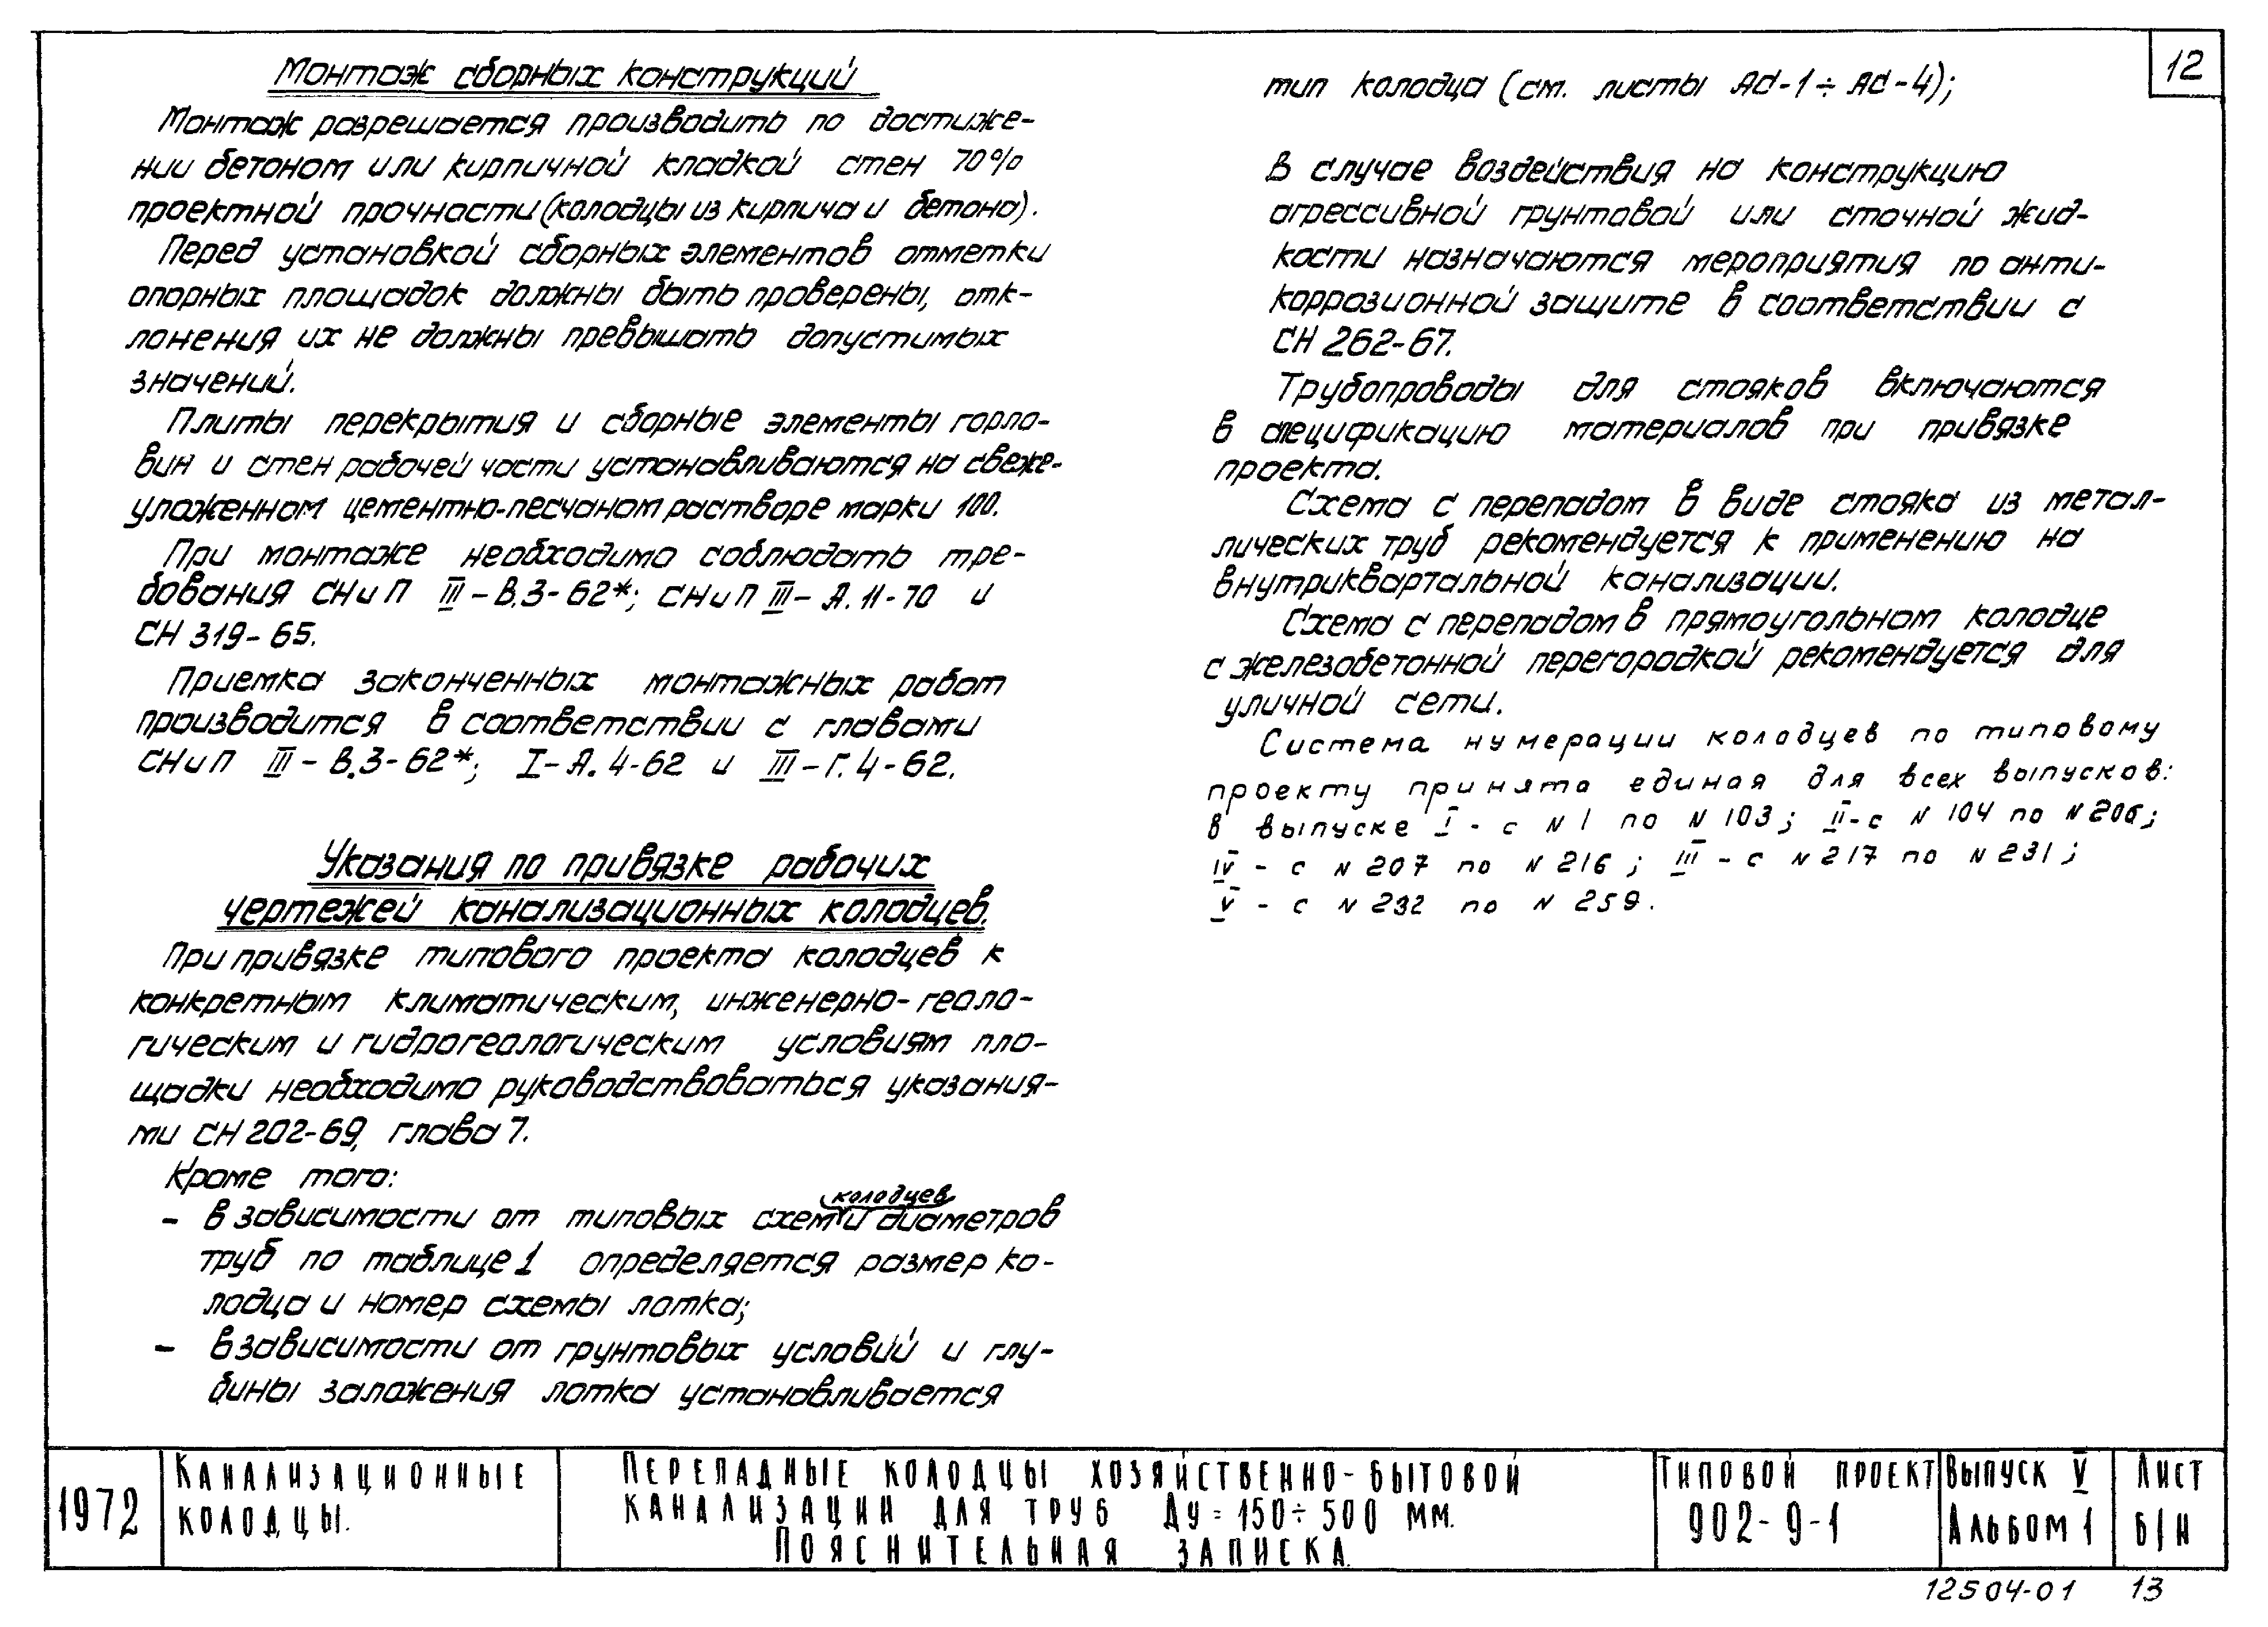 12
Монтаж сборных конструкций
Монтаж разрешается производить по достиже-
нии бетоном или кирпичной кладкой стен 70%
проектной прочности (колодцы из кирпича и бетона).
Перед установкой сборных элементов отметки
опорных площадок должны быть проверены, отк-
лонения их не должны превышать допустимых
значений.
Плиты перекрытия и сборные элементы горло-
вин и стен рабочей части устанавливаются на свеже-
уложенном цементно-песчаном растворе марки 100.
При монтаже необходимо соблюдать тре-
бования СНиП III-В.3-62*; СНиП III-А.11-70 и
СН 319-65.
Приемка законченных монтажных работ
производится в соответствии с главами
СНиП III-В.3-62*; I-А.4-62 и III-Г.4-62.
Указания по привязке рабочих
чертежей канализационных колодцев.
При привязке типового проекта колодцев к
конкретным климатическим, инженерно-геоло-
гическим и гидрогеологическим условиям пло-
щадки необходимо руководствоваться указания-
ми СН 202-69, глава 7.
Кроме того:
колодцев
- в зависимости от типовых схем и диаметров
труб по таблице 1 определяется размер ко-
лодца и номер схемы лотка;
- в зависимости от грунтовых условий и глу-
бины заложения лотка устанавливается
тип колодца (см. листы АС-1÷АС-4);
В случае воздействия на конструкцию
агрессивной грунтовой или сточной жид-
кости назначаются мероприятия по анти-
коррозионной защите в соответствии с
СН 262-67.
Трубопроводы для стояков включаются
в спецификацию материалов при привязке
проекта.
Схема с перепадом в виде стояка из метал-
лических труб рекомендуется к применению на
внутриквартальной канализации.
Схема с перепадом в прямоугольном колодце
с железобетонной перегородкой рекомендуется для
уличной сети.
Система нумерации колодцев по типовому
проекту принята единая для всех выпусков:
в выпуске I - с N 1 по N 103; II - с N 104 по N 206;
IV - с N 207 по N 216; III - с N 217 по N 231;
V - с N 232 по N 259.
1972
Канализационные
колодцы.
Перепадные колодцы хозяйственно-бытовой
канализации для труб Ду=150÷500 мм.
Пояснительная записка.
Типовой проект
902-9-1
Выпуск V
Альбом 1
Лист
Б/Н
12504-01 13